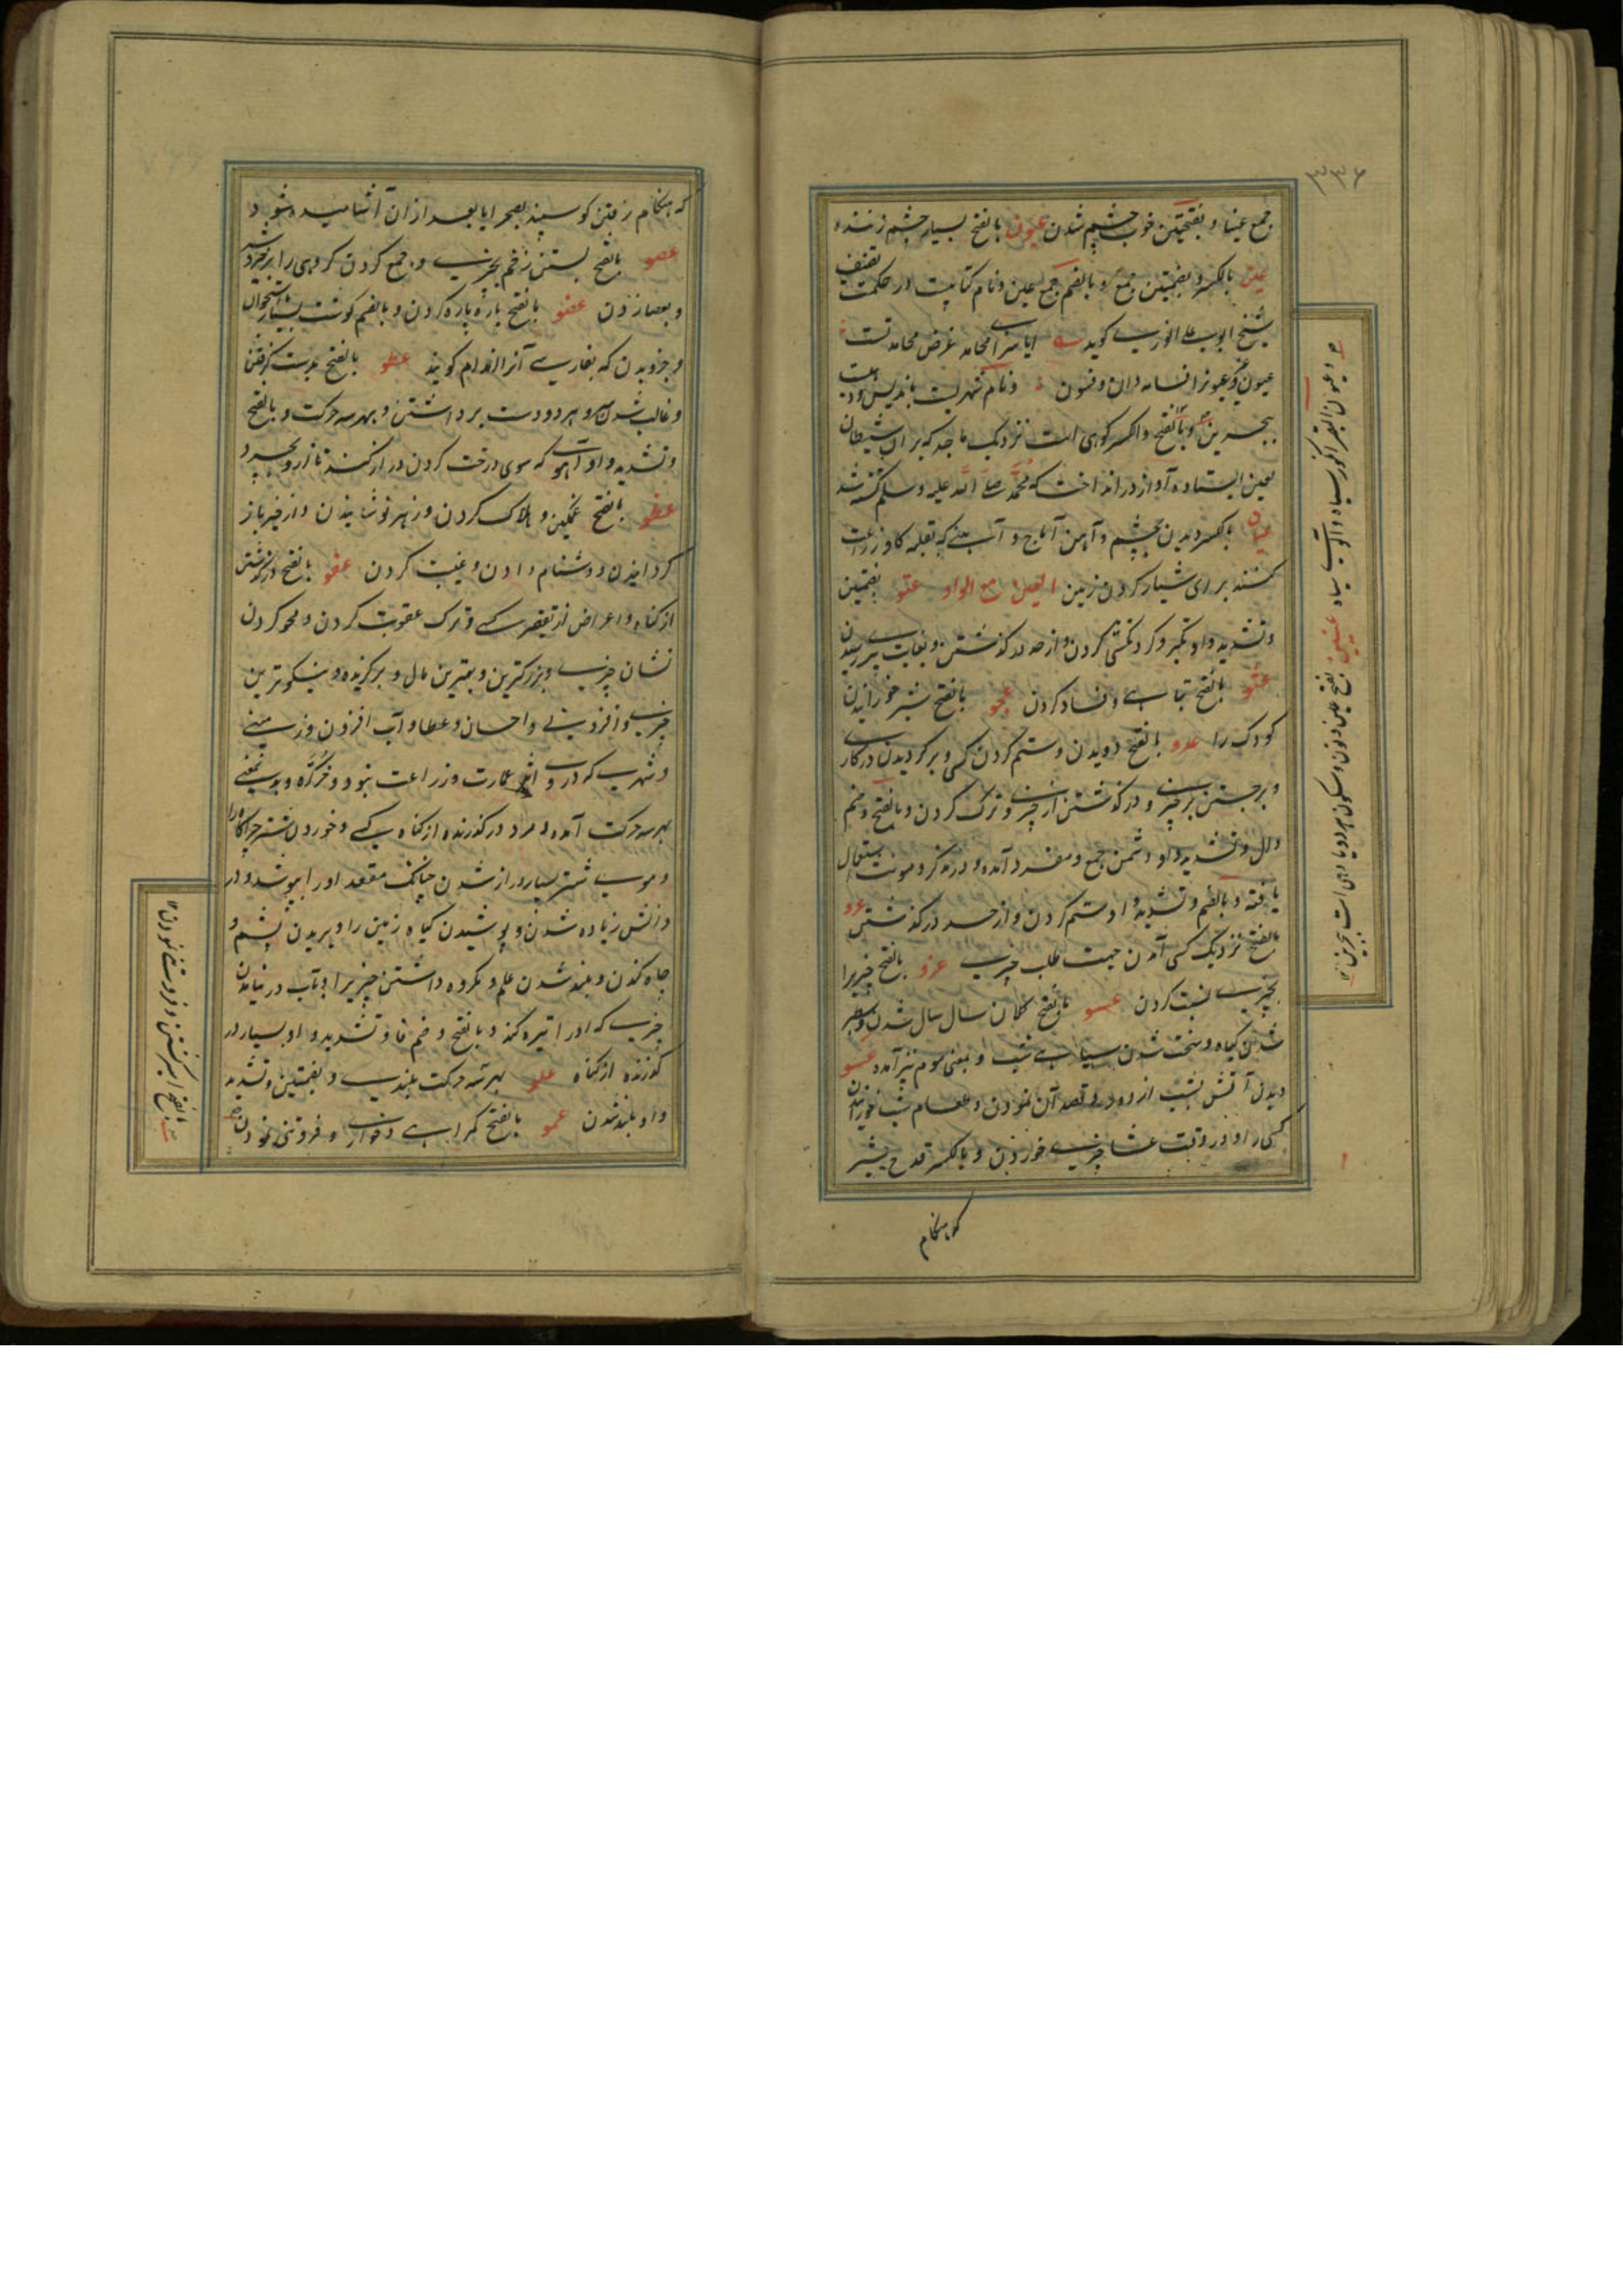 ۳۳۶
جمع عیناء و بفتحتین خوب چشم شدن عیون بالفتح بسیار چشم زننده و
عین بالکسر و بضمتین جمع و بالضم جمع عین و نام کتابیست در حکمت تصنیف
شیخ ابوعلی انوری گوید ایا محامد غرض محامد تست
عیون و فسون و نام شهریست باندلس
ببحرین و بالفتح والکسر کوهی است نزدیک باحد که بران شیطان
لعین ایستاده آواز در انداخت که محمد صلی الله علیه وسلم کشته شد
عیان بالکسر دیدن بچشم و آهن آماج و آب
کنند برای شیار کردن زمین العین مع الواو عتو بضمتین
و تشدید واو تکبر و گردنکشی کردن و از حد در گذشتن و بغایت پیری رسیدن
عثو بالفتح تباهی و فساد کردن عجو بالفتح شیر خورانیدن
کودک را عدو بالفتح دویدن و ستم کردن کسی و برگردیدن در کار
و برجستن بر چیزی و در گذشتن از چیزی و ترک کردن و بالفتح و ضم
دال و تشدید واو دشمن جمع و مفرد آمده و در مذکر و مونث استعمال
یافته و بالضم و تشدید واو ستم کردن و از حد در گذشتن عرو
بالفتح نزدیک کسی آمدن جهت طلب چیزی عزو بالفتح چیزیرا
بچیزی نسبت کردن عسو بالفتح کلان سال شدن و سطبر
شدن گیاه و سخت شدن سیاهی شب و بمعنی سوم نیز آمده عشو
دیدن آتش بشب از دور و قصد آن نمودن و طعام شب خورانیدن
کسی را و در وقت عشا چیزی خوردن و بالکسر قدح شیر
که هنگام
و عیون البقر انگور سیاه و آلوی سیاه عینین بفتح عین و نون و سکون هر دو یا وادی است ببحرین
که هنگام رفتن گوسپند بصحرا یا بعد از آن آشامیده شود
عصو بالفتح بستن زخم بچیزی و جمع کردن گروهی را بر خیر و شر
و بعصا زدن عضو بالفتح پاره پاره کردن و بالضم گوشت بسیار باستخوان
و جزو بدن که بفارسی آنرا اندام گویند عطو بالفتح بدست گرفتن
و غالب شدن و سر و هر دو دست برداشتن و بهر سه حرکت و بالفتح
و تشدید واو آهو که سوی درخت گردن دراز کند تا ازو بچرد
عظو بالفتح غمگین و هلاک کردن و زهر نوشانیدن و از خیر باز
گردانیدن و دشنام دادن و غیبت کردن عفو بالفتح در گذشتن
از گناه و اعراض از تقصیر کسی و ترک عقوبت کردن و محو کردن
نشان چیزی و بزرگترین و بهترین مال و برگزیده و نیکوترین
چیزی و افزونی و احسان و عطا و آب افزون و زمینی
و شهری که درو اثر عمارت و زراعت نبود و خرکره و بدین معنی
بهر سه حرکت آمده و مرد در گذرنده از گناه کسی و خوردن شتر چراگاه را
و موی شتر بسیار و دراز شدن چنانکه مقعد او را بپوشد و در
دانش زیاده شدن و پوشیدن گیاه زمین را و بریدن پشم و
چاه کندن و بلند شدن علم و مکروه داشتن چیزیرا و بآب در نیامدن
چیزی که او را تیره کند و بالفتح و ضم فا و تشدید واو بسیار در
گذرنده از گناه علو بهر سه حرکت بلندی و بضمتین و تشدید
واو بلند شدن عمو بالفتح گمراهی و خواری و فروتنی نمودن
بالفتح برگشتن و فروتنی نمودن